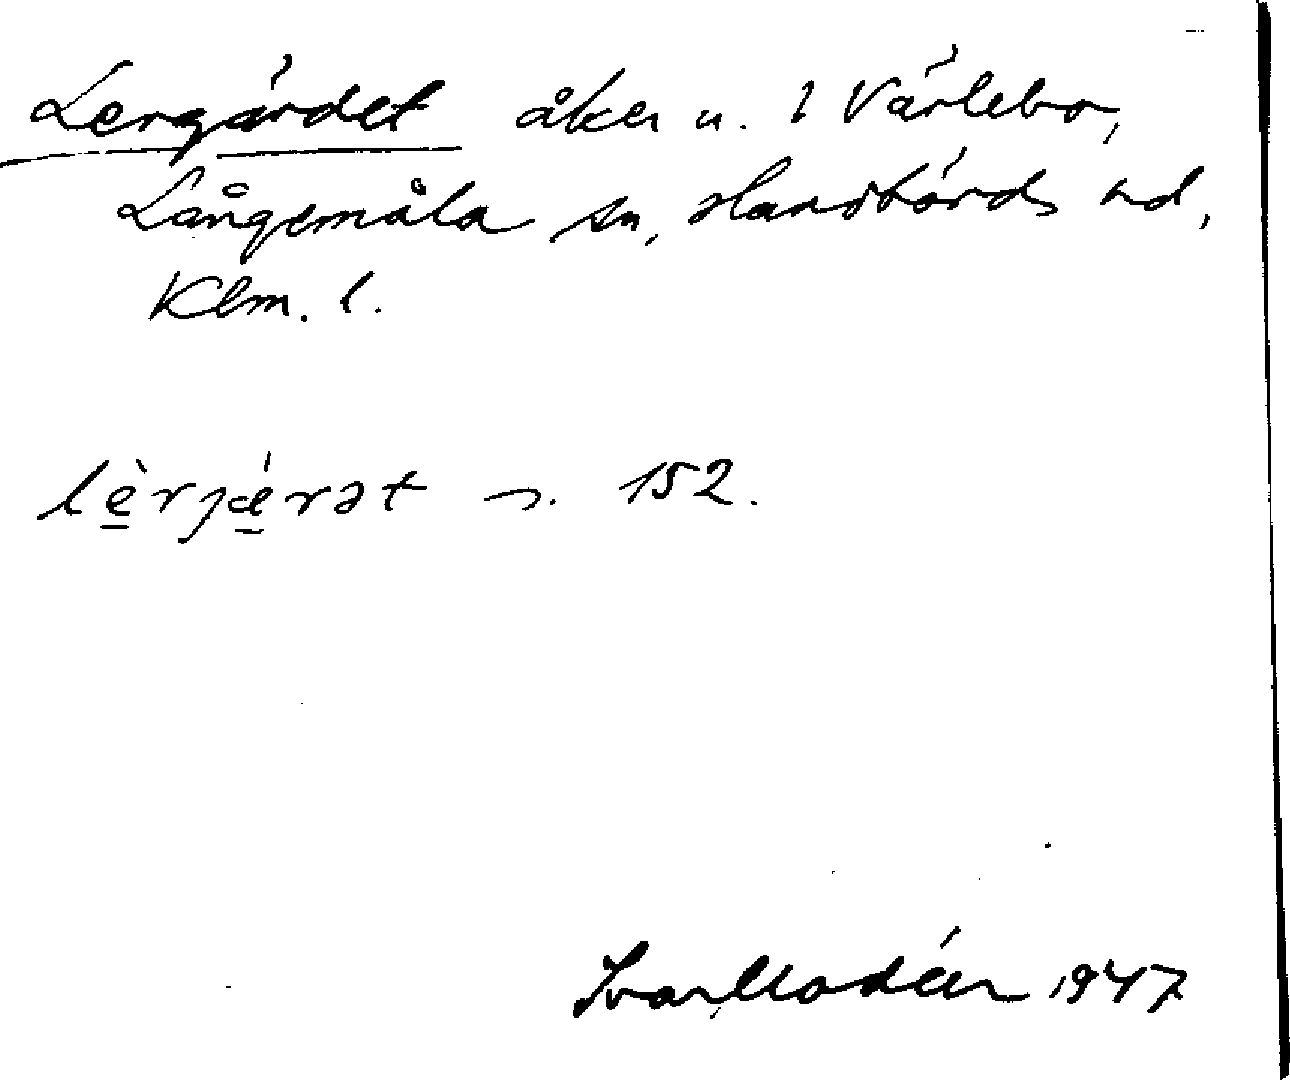 Lergärdet åker n. i Värlebo,
Långemåla sn, Handbörds hd,
Klm. l.
lè̱rjǽ̱rət n. 152.
Ivar Modéer 1947